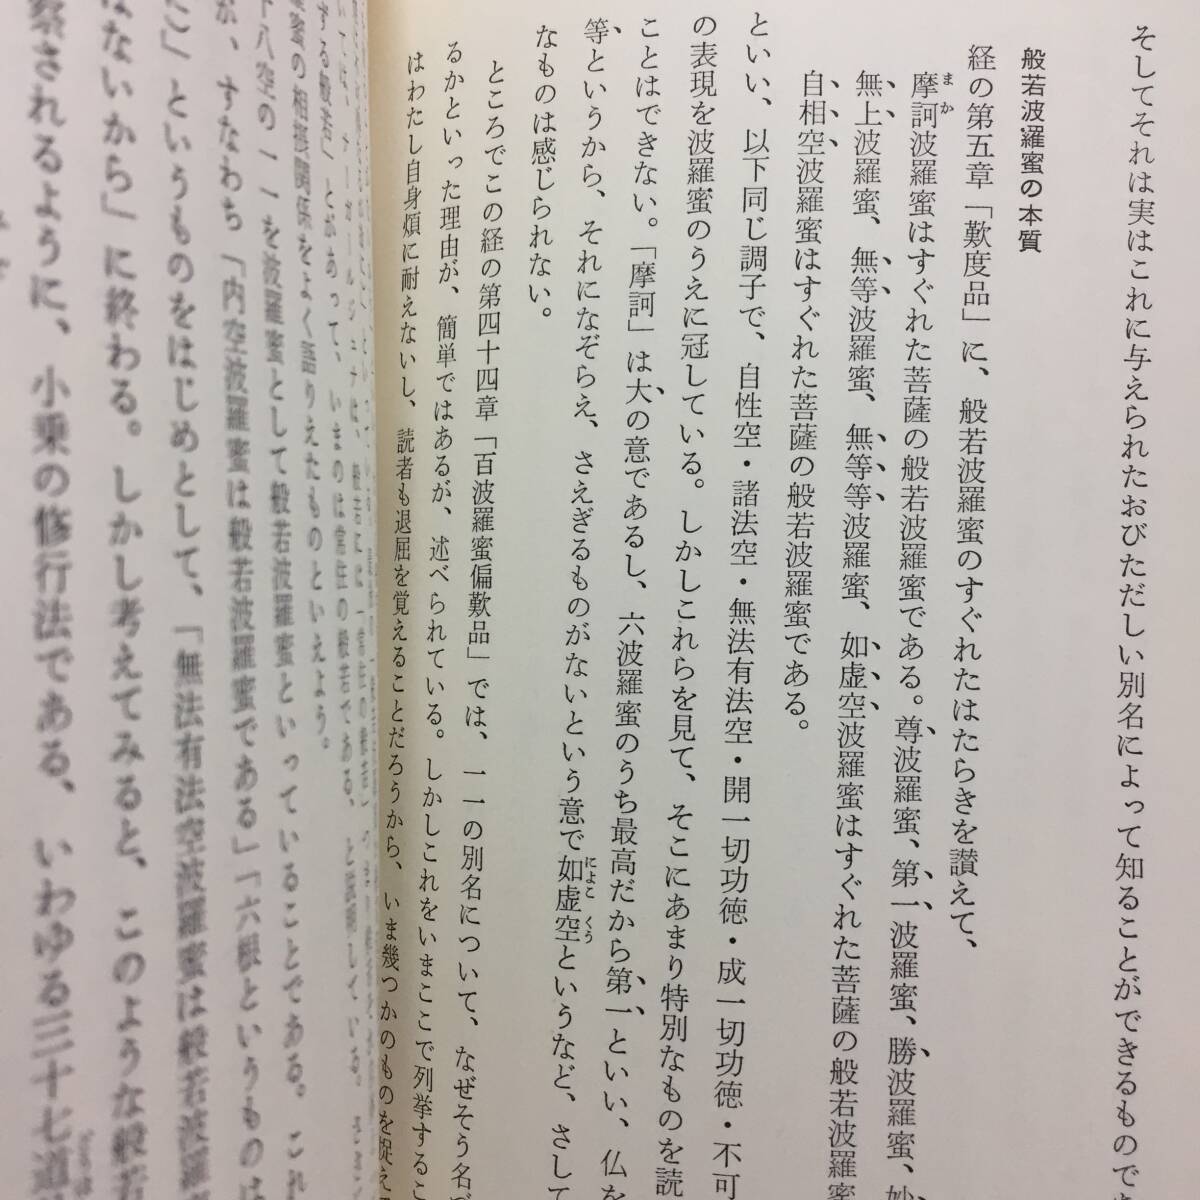 そしてそれは実はこれに与えられたおびただしい別名によって知ることができるもので
般若波羅蜜の本質
経の第五章「歎度品」に、般若波羅蜜のすぐれたはたらきを讃えて、
摩訶波羅蜜はすぐれた菩薩の般若波羅蜜である。尊波羅蜜、第一波羅蜜、勝波羅蜜、妙
無上波羅蜜、無等波羅蜜、無等等波羅蜜、如虚空波羅蜜はすぐれた菩薩の般若波羅蜜
自相空波羅蜜はすぐれた菩薩の般若波羅蜜である。
といい、以下同じ調子で、自性空・諸法空・無法有法空・開一切功徳・成一切功徳・不可
の表現を波羅蜜のうえに冠している。しかしこれらを見て、そこにあまり特別なものを読
ことはできない。「摩訶」は大の意であるし、六波羅蜜のうち最高だから第一といい、仏を
等というから、それになぞらえ、さえぎるものがないという意で如虚空というなど、さして
なものは感じられない。
ところでこの経の第四十四章「百波羅蜜偏歎品」では、一一の別名について、なぜそう名づ
るかといった理由が、簡単ではあるが、述べられている。しかしこれをいまここで列挙するこ
はわたし自身煩に耐えないし、読者も退屈を覚えることだろうから、いま幾つかのものを捉え
する般若」とがあって、いまのは常住の般若である、と説明している。
蜜の相摂関係をよく語りえたものといえよう。
十八空の一一を波羅蜜として般若波羅蜜といっていることである。これ
が、すなわち「内空波羅蜜は般若波羅蜜である」「六根というものは
こ」というものをはじめとして、「無法有法空波羅蜜は般若波羅
はないから」に終わる。しかし考えてみると、このような般若
察されるように、小乗の修行法である、いわゆる三十七道